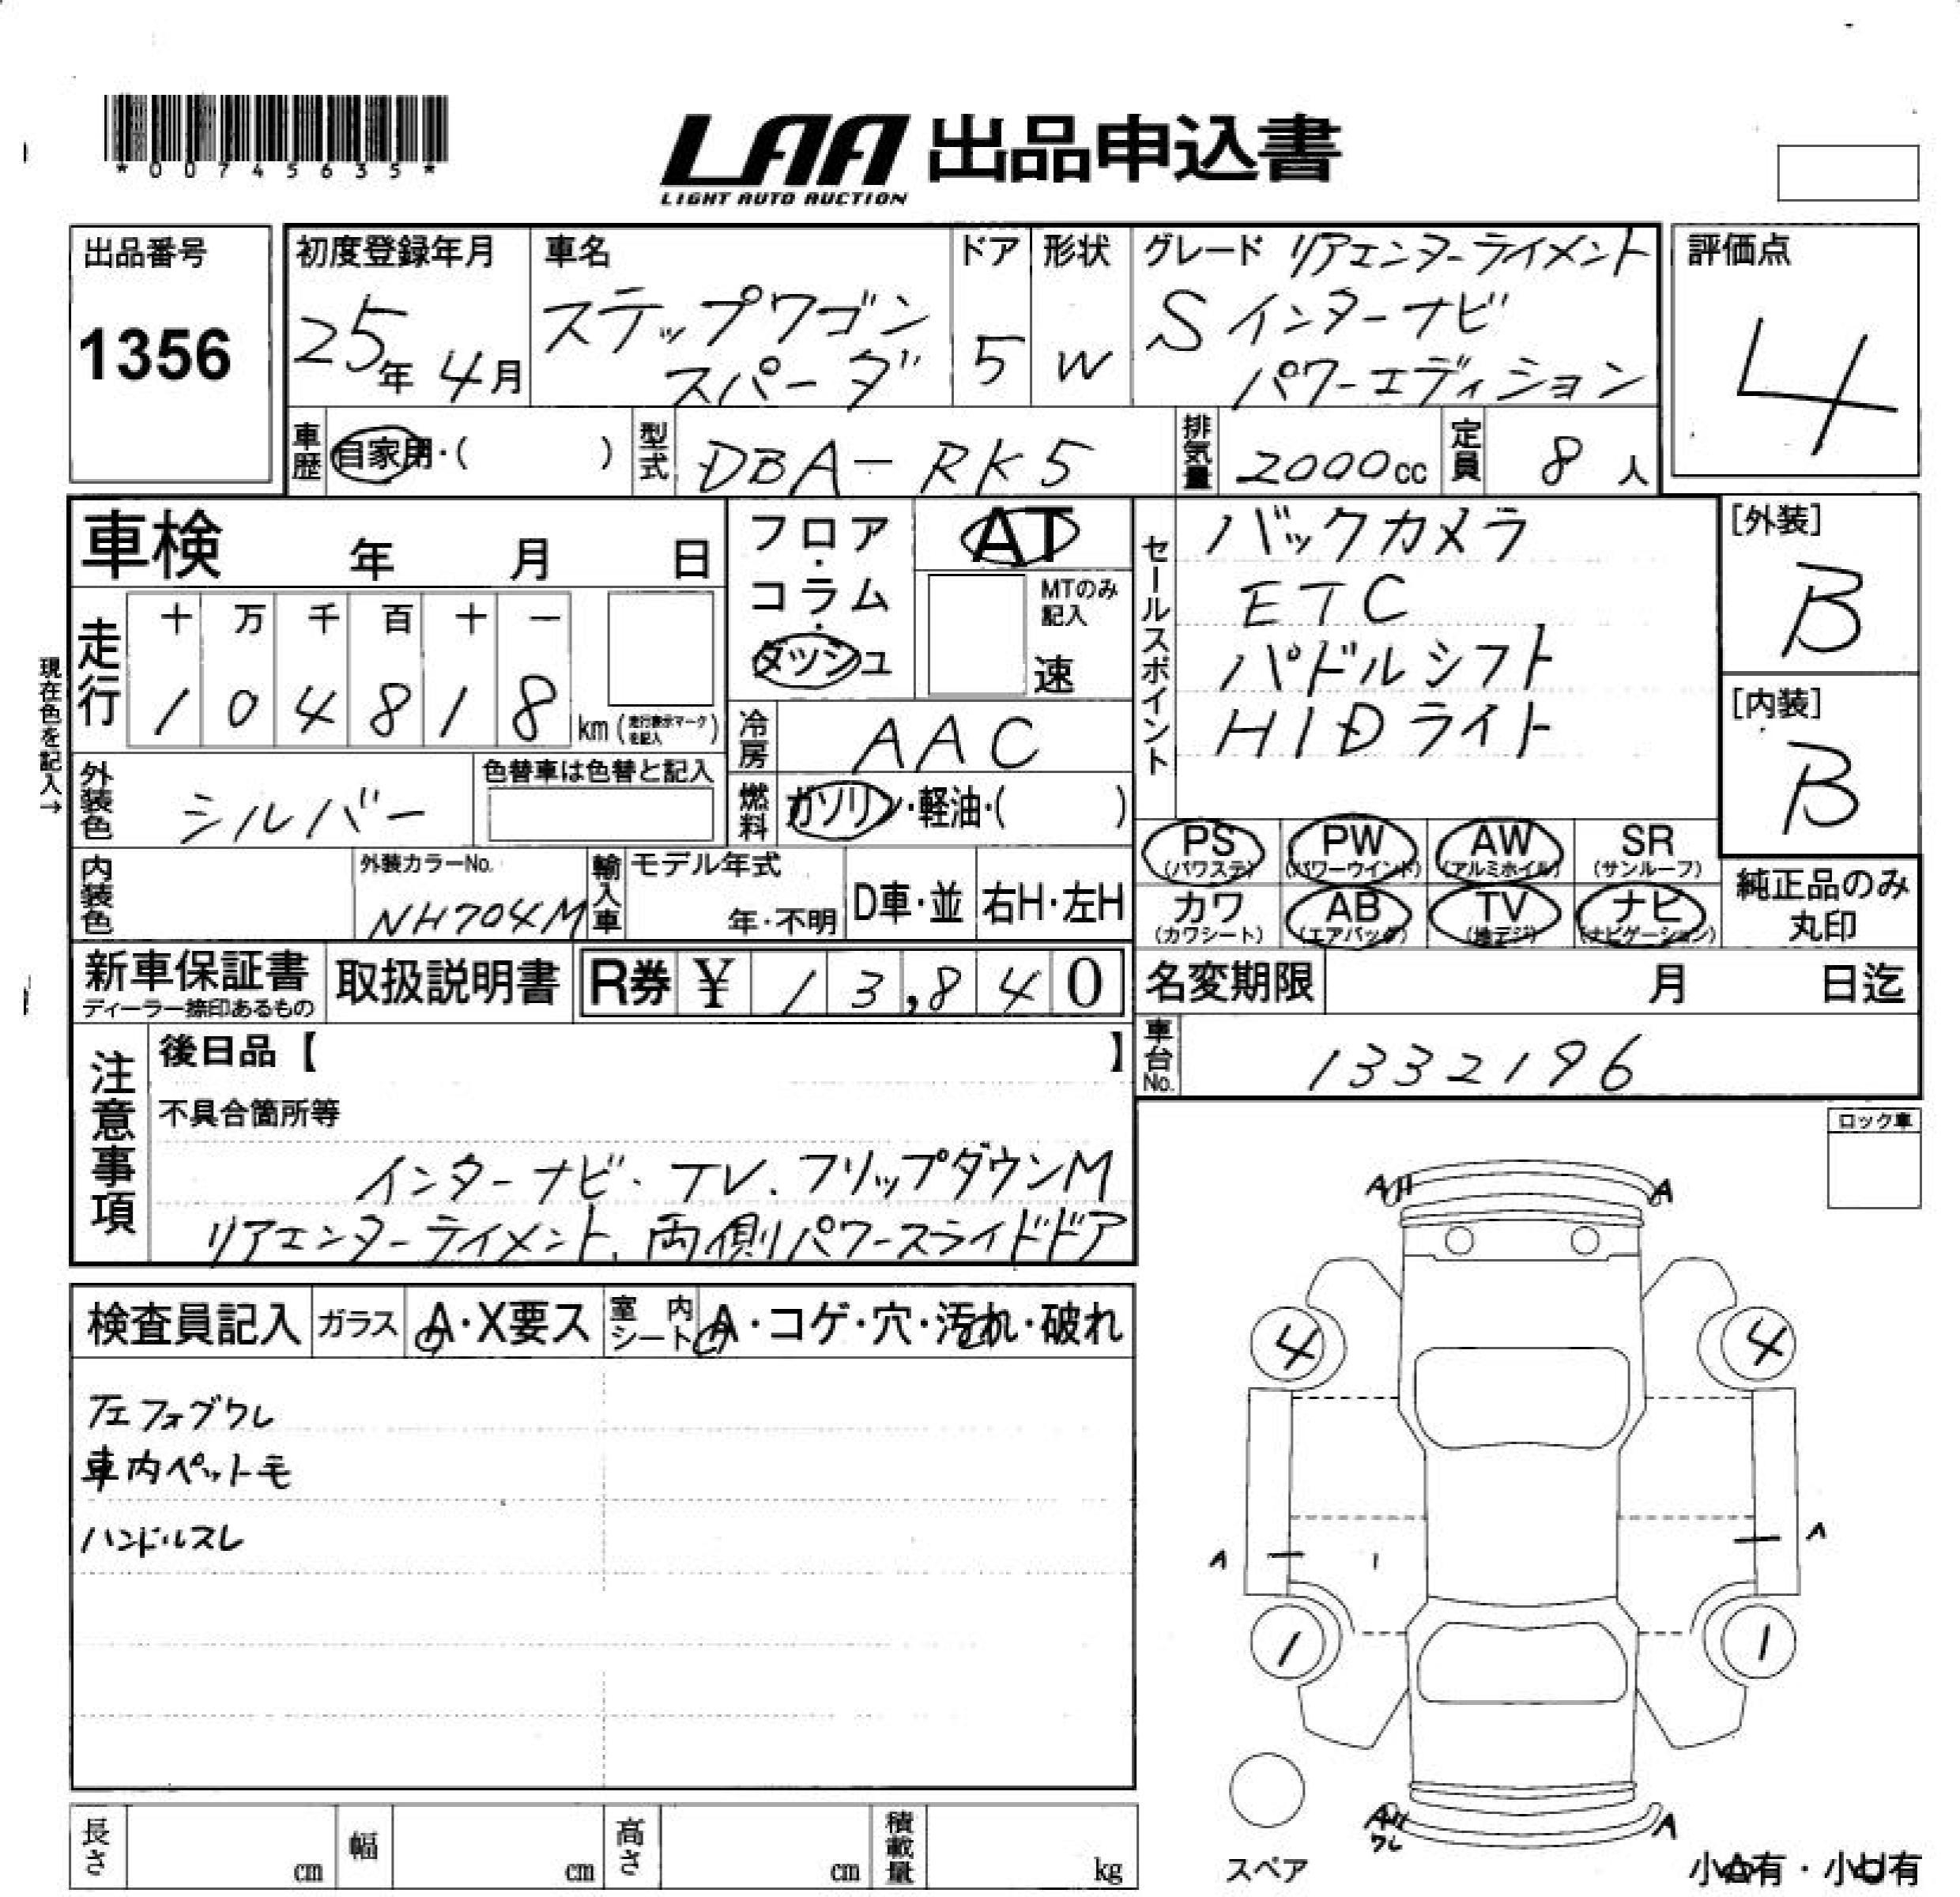 *00745635*
LAA 出品申込書
LIGHT AUTO AUCTION
出品番号
1356
初度登録年月
25年 4月
車名
ステップワゴン
スパーダ
ドア
5
形状
W
グレード リアエンターライメント
S インターナビ
パワーエディション
評価点
4
車歴
自家用・( )
型式
DBA-RK5
排気量
2000cc
定員
8人
車検 年 月 日
フロア・コラム・ダッシュ
AT
MTのみ記入
速
セールスポイント
バックカメラ
ETC
パドルシフト
HIDライト
[外装]
B
[内装]
B
現在色を記入→
走行
十 万 千 百 十 一
1 0 4 8 1 8 km (走行表示マークを記入)
冷房
AAC
外装色
シルバー
色替車は色替と記入
燃料
ガソリン・軽油・( )
PS (パワステ)
PW (パワーウインド)
AW (アルミホイル)
SR (サンルーフ)
カワ (カワシート)
AB (エアバッグ)
TV (地デジ)
ナビ (ナビゲーション)
純正品のみ
丸印
内装色
外装カラーNo.
NH704M
輸入車
モデル年式
年・不明
D車・並
右H・左H
新車保証書
ディーラー捺印あるもの
取扱説明書
R券 ¥ 13,840
名変期限 月 日迄
車台No.
1332196
注意事項
後日品【 】
不具合箇所等
インターナビ・TV.フリップダウンM
リアエンターライメント、両側パワースライドドア
ロック車
検査員記入
ガラス
A・X要ス
室内シート
A・コゲ・穴・汚れ・破れ
左フォグワレ
車内ペット毛
ハンドルスレ
A
A
4
4
A
A
1
1
A
ワレ
A
スペア
小A有・小U有
長さ cm
幅 cm
高さ cm
積載量 kg